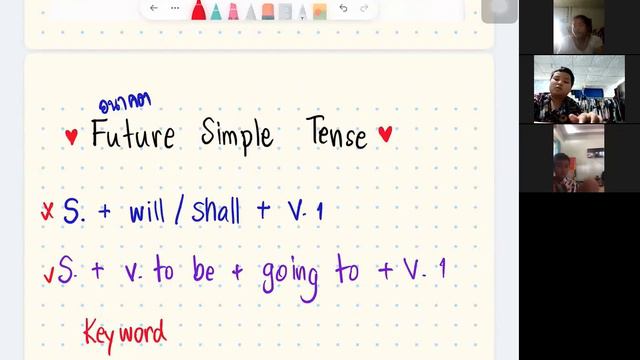 อนาคต
♥ Future Simple Tense ♥
x S. + will / shall + V. 1
✓ S. + v. to be + going to + V. 1
Key word